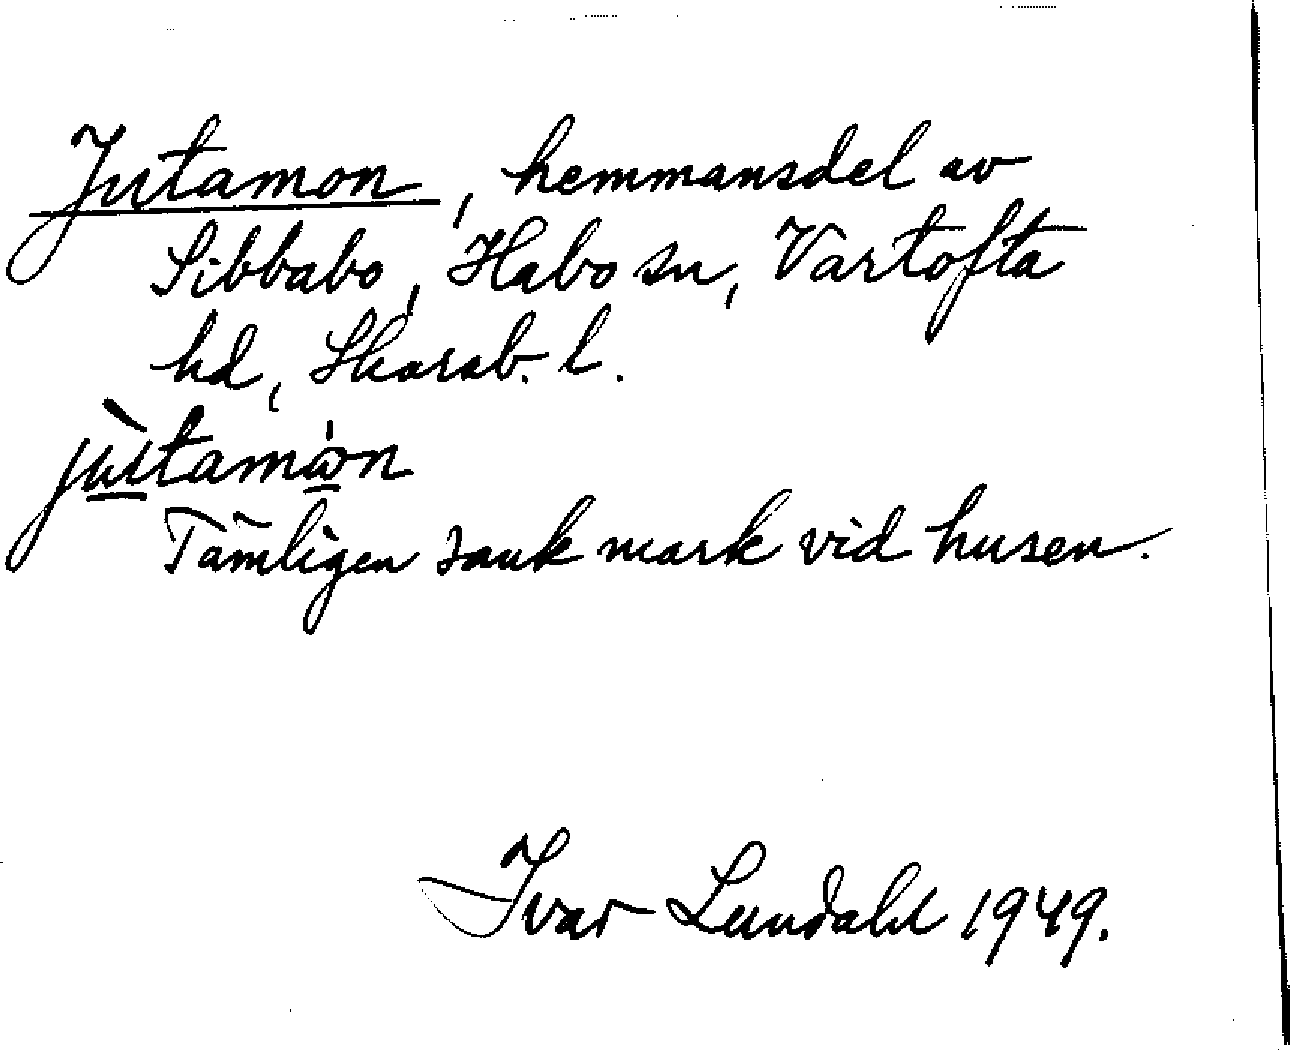 Jutamon, hemmansdel av
Sibbabo, Habo sn, Vartofta
hd, Skarab. l.
jùtamón
Tämligen sank mark vid husen.
Ivar Lundahl 1949.